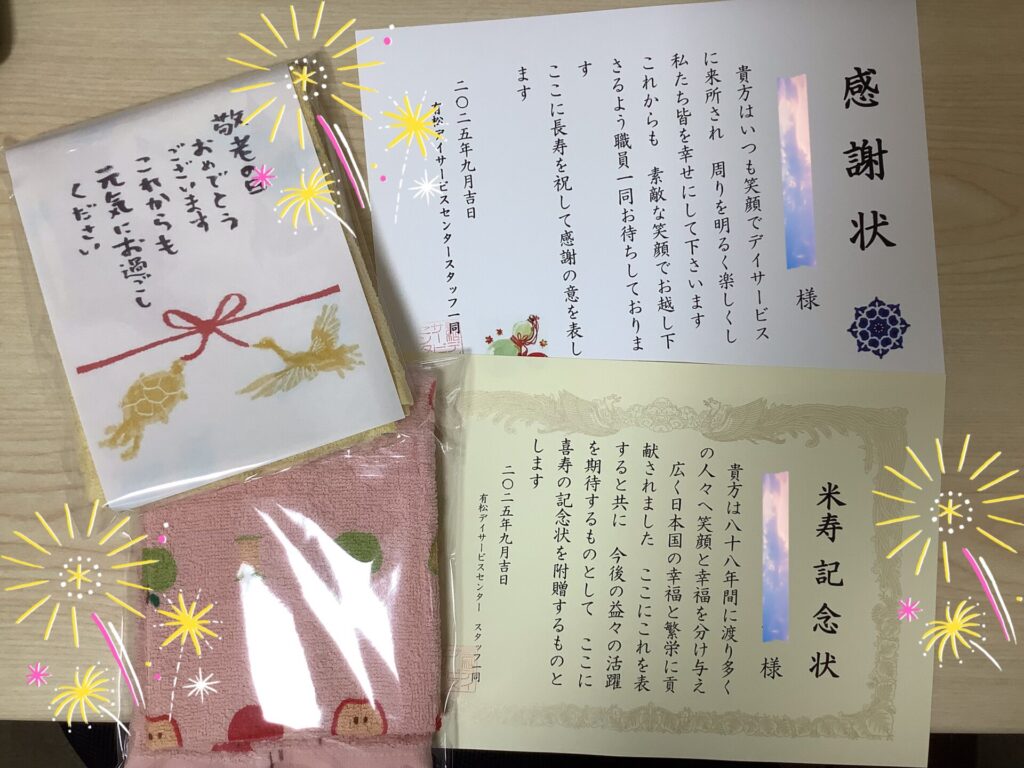 感謝状
様
貴方はいつも笑顔でデイサービス
に来所され 周りを明るく楽しくし
私たち皆を幸せにして下さいます
これからも 素敵な笑顔でお越し下
さるよう職員一同お待ちしておりま
す
ここに長寿を祝して感謝の意を表し
ます
二〇二五年九月吉日
有松デイサービスセンタースタッフ一同
敬老の日
おめでとう
ございます
これからも
元気にお過ごし
ください
米寿記念状
様
貴方は八十八年間に渡り多く
の人々へ笑顔と幸福を分け与え
広く日本国の幸福と繁栄に貢
献されました ここにこれを表
すると共に 今後の益々の活躍
を期待するものとして ここに
喜寿の記念状を附贈するものと
します
二〇二五年九月吉日
有松デイサービスセンター スタッフ一同